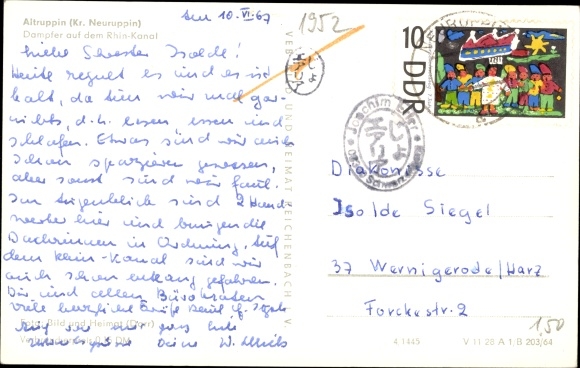 Altruppin (Kr. Neuruppin)
Dampfer auf dem Rhin-Kanal
den 10.VI.67
1952
Liebe Schwester Isolde!
Heute regnet es und es ist
kalt, da tun wir mal gar-
nichts, d.h. lesen essen und
schlafen. Etwas sind wir auch
schon spazieren gewesen,
aber sonst sind wir faul.
Im Augenblick sind 2 Hand
werker hier und bringen die
Dachrinnen in Ordnung. Auf
dem Rhin-Kanal sind wir
auch schon entlang gefahren.
Dir und allen
viele herzliche Grüße
Foto: Bild und Heimat
Deine
VEB BILD UND HEIMAT REICHENBACH I. V.
10 DDR
NEURUPPIN
Joachim
Diakonisse
Isolde Siegel
37 Wernigerode/Harz
Forckestr. 2
1,50
4,1445 V 11 28 A 1, B 203/64